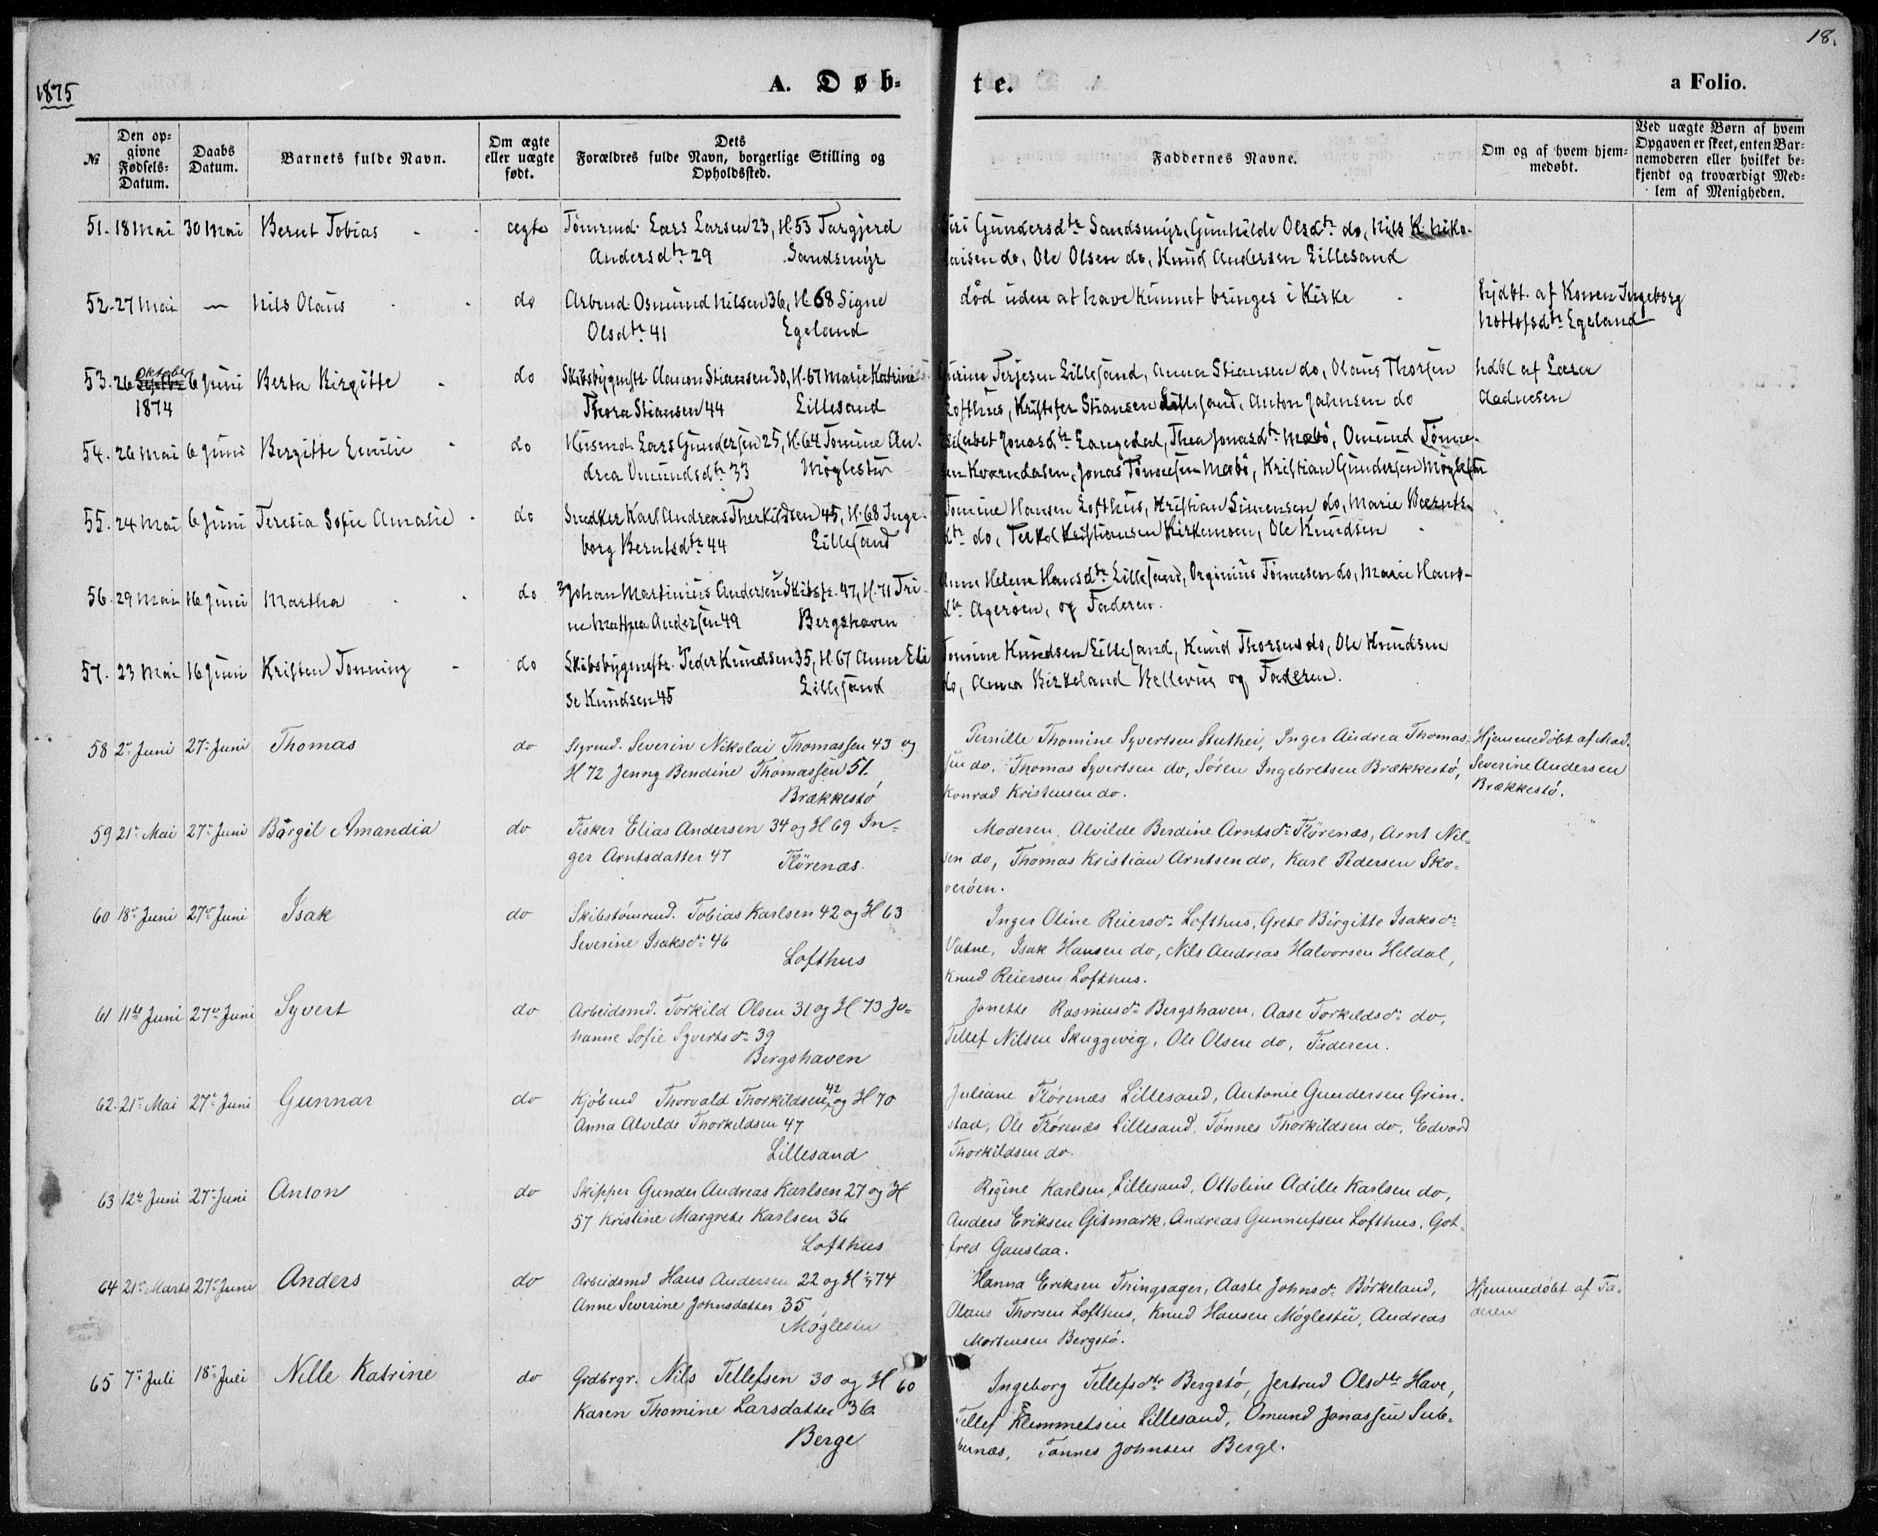 18.
1875
A. Døb-
te.
a Folio.
№
Den op-
givne
Fødsels-
Datum.
Daabs
Datum.
Barnets fulde Navn.
Om ægte
eller uægte
født.
Dets
Forældres fulde Navn, borgerlige Stilling og
Opholdssted.
Faddernes Navne.
Om og af hvem hjem-
medøbt.
Ved uægte Børn af hvem
Opgaven er skeet, enten Bar-
nemoderen eller hvilket be-
kjendt og troværdigt Med-
lem af Menigheden.
51. 18 Mai 30 Mai Bernt Tobias - - ægte Tømrmd. Lars Larsen 23, H. 53 Targjerd
Andersdtr 29 Sandsmyr
Siri Gundersdtr Sandsmyr, Gunhilde Olsdtr do, Nils K. Niko-
laisen do, Ole Olsen do, Knud Andersen Lillesand
52. 27 Mai — Nils Olaus - - do Arbmd Osmund Nilsen 36, H. 68 Signe
Olsdtr 41 Egeland
død uden at have kunnet bringes i Kirke -
hjdbt. af Konen Ingeborg
Egeland
53. 26 Oktober 6 Juni Berta Birgitte - do Skibsbygmstr. Aanon Stiansen 30, H. 67 Marie Katrine
1874 Thora Stiansen 44 Lillesand
Gurine Terjesen Lillesand, Anna Stiansen do, Olaus Thorsen
Lofthus, Kristofer Stiansen Lillesand, Anton Jahnsen do
hdbt af Lærer
Aadnesen
54. 26 Mai 6 Juni Bergitte Emilie - do Husmd. Lars Gundersen 25, H. 64 Tomine An-
drea Omundsdtr 33 Møglestu
Elisabet Jonasdtr Langedal, Thea Jonasdtr Mæbø, Omund Tønne-
sen Kværndalen, Jonas Tønnesen Mæbø, Kristian Gundersen Møglestu
55. 24 Mai 6 Juni Teresia Sofie Amalie - do Snedker Karl Andreas Therkildsen 45, H. 68 Inge-
borg Berntsdtr 44 Lillesand
Tomine Hansen Lofthus, Kristian Simensen do, Marie Beernts-
dtr do, Terkel Kristiansen Kirkemoen, Ole Knudsen -
56. 29 Mai 16 Juni Martha - - do Johan Martinius Andersen Skibstr. 47, H. 71 Tri-
ne Mathea Andersen 49 Bergshaven
Anne Helene Hansdtr Lillesand, Orginius Tønnesen do, Marie Hans-
dtr Agerøen, og Faderen.
57. 23 Mai 16 Juni Kristen Tonning - do Skibsbygmestr. Peder Knudsen 35, H 67 Anne Eli
se Knudsen 45 Lillesand
Tomine Knudsen Lillesand, Knud Thorsen do, Ole Knudsen
do, Anna Birkeland Bellevue og Faderen.
58 2den Juni 27de Juni Thomas do Styrmd. Severin Nikolai Thomassen 43 og
H 72 Jenny Bendine Thomassen 51.
Brækkestø
Pernille Thomine Syvertsen Stuthei, Inger Andrea Thomas-
sen do, Thomas Syvertsen do, Søren Ingebretsen Brækkestø,
Konrad Kristensen do.
Hjemmedøbt af Mad.
Severine Andersen
Brækkestø.
59 21de Mai 27de Juni Børgil Amandia do Fisker Elias Andersen 34 og H 69 In-
ger Arntsdatter 47 Flørenæs.
Moderen, Alvilde Berdine Arntsdr Flørenæs, Arnt Nil-
sen do, Thomas Kristian Arntsen do, Karl Pedersen Sko-
verøen.
60 18de Juni 27de Juni Isak do Skibstømrmd. Tobias Karlsen 42 og H 63
Severine Isaksdr 46
Lofthus
Inger Oline Reiersdr Lofthus, Grete Birgitte Isaksdr
Vatne, Isak Hansen do, Nils Andreas Halvorsen Heldal,
Knud Reiersen Lofthus.
61 11te Juni 27de Juni Syvert do Arbeidsmd. Torkild Olsen 31 og H 73 Jo-
hanne Sofie Syvertsdr 39
Bergshaven
Jonette Rasmusdr Bergshaven, Aase Torkildsdr do,
Tellef Nilsen Skuggevig, Ole Olsen do, Faderen.
62. 21de Mai 27de Juni Gunnar do Kjøbmd Thorvald Thorkildsen 42, og H 70
Anna Alvilde Thorkildsen 47
Lillesand
Juliane Flørenæs Lillesand, Antonie Gundersen Grim-
stad, Ole Flørenæs Lillesand, Tønnes Thorkildsen do, Edvard
Thorkildsen do.
63 12te Juni 27de Juni Anton do Skipper Gunder Andreas Karlsen 27 og H
57 Kristine Margrete Karlsen 36
Lofthus
Regine Karlsen, Lillesand, Ottoline Adille Karlsen do,
Anders Eriksen Gitmark, Andreas Gunnufsen Lofthus, Got-
fred Gauslaa.
64 21de Marts 27de Juni Anders do Arbeidsmd Hans Andersen 22 og H 74
Anne Severine Johnsdatter 35
Møglestu
Hanna Eriksen Thingsager, Aaste Johnsdr Børkeland,
Olaus Thorsen Lofthus, Knud Hansen Møglestu, Andreas
Mortensen Bergstø.
Hjemmedøbt af Fa-
deren
65 7de Juli 18de Juli Nille Katrine do Grdbrgr. Nils Tellefsen 30 og H 60
Karen Thomine Larsdatter 36
Berge
Ingeborg Tellefsdtr Bergstø, Jertrud Olsdtr Have,
Tellef Klemmetsen Lillesand, Omund Jonassen Sub-
bernæs, Tønnes Johnsen Berge.